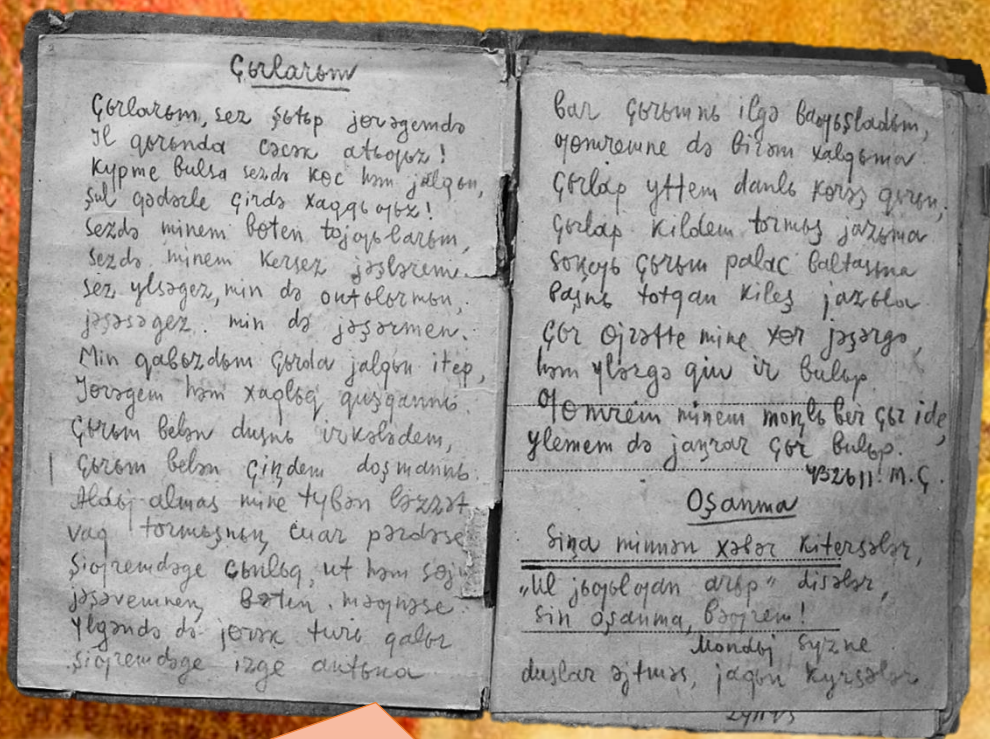 Çьrlarьm
Çьrlarьm, sez şьtьp jɵrəgemdə
Il qьrьnda cəcək atьƣьz!
Kypme bulsa sezdə kɵc həm jalqьn,
Şul qədərle çirdə xaqqьƣьz!
Sezdə minem bɵten tojƣьlarьm,
Sezdə minem kersez jəşlərem.
Sez ylsəgez, min də onьtьlьrmьn,
jəşəsəgez min də jəşərmen.
Min qabьzdьm çьrda jalqьn itep,
Jɵrəgem həm xaqlьq quşqannь.
Çьrьm belən dusnь irkələdem,
Çьrьm belən çiꞑdem doşmannь.
Aldьj almas mine tybən ləzzət
vaq tormьşnьꞑ cuar pərdəse
Şiƣremdəge cьnlьq, ut həm sɵju
jəşəvemneꞑ bɵten məƣnəse.
Ylgəndə də jɵrək turь qalьr
Şiƣremdəge izge antьna
Bar çьrьmnь ilgə baƣьşladьm,
Ƣomremne də birəm xalqьma
Çьrlap yttem danlь kɵrəş qьrьn,
Çьrlap kildem tormьş jazьna
Soꞑƣь çьrьm palac baltasьna
Başnь totqan kileş jazьla
Çьr ɵjrətte mine xɵr jəşərgə,
həm ylərgə qьju ir bulьp.
Ƣomrem minem moꞑlь ber çьr ide,
Ylemem də jaꞑrar çьr bulьp.
M.Ç.
Oşanma
Siꞑa minnən xəbər kitersələr,
„Ul jьƣьlƣan arьp“ disələr,
Sin oşanma, bəƣrem!
Mondьj syzne
duslar əjtməs, jaqьn kyrsələr